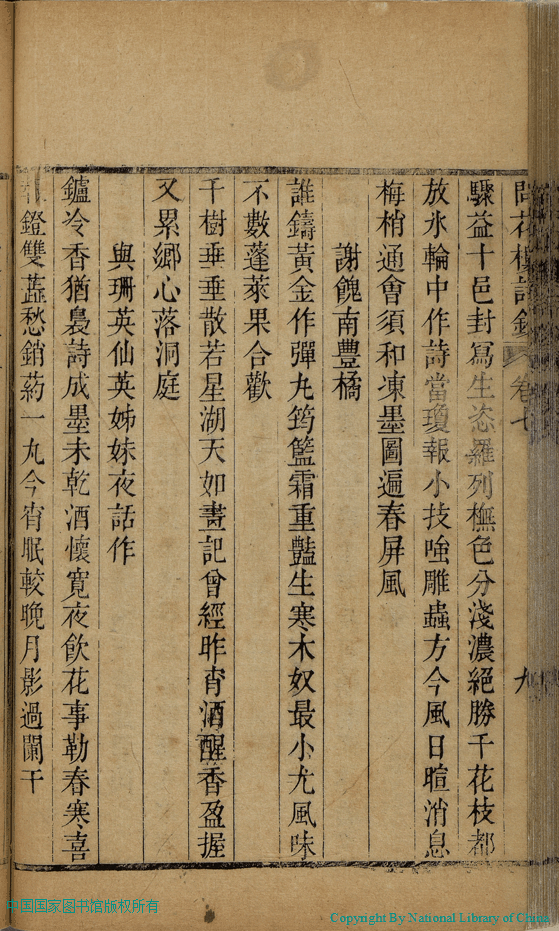 問花樓詩鈔 卷七 九
驟益十邑封寫生恣羅列橅色分淺濃絕勝千花枝都
放氷輪中作詩當瓊報小技嗤雕蟲方今風日暄消息
梅梢通會須和凍墨圖遍春屏風
謝餽南豐橘
誰鑄黃金作彈丸筠籃霜重豔生寒木奴最小尤風味
不數蓬萊果合歡
千樹垂垂散若星湖天如畫記曾經昨宵酒醒香盈握
又累鄉心落洞庭
與珊英仙英姊妹夜話作
鑪冷香猶裊詩成墨未乾酒懷寬夜飲花事勒春寒喜
鐙雙蘂愁銷葯一丸今宵眠較晚月影過闌干
中国国家图书馆版权所有
Copyright By National Library of China